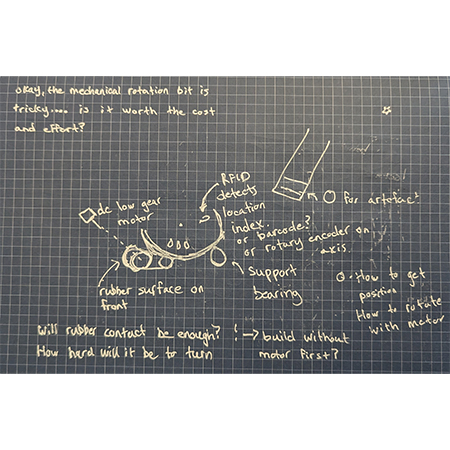 okay, the mechanical rotation bit is
tricky.... is it worth the cost
and effort?
RFID
detects
location
index.
or barcode?
or rotary encoder on
axis.
for artefact
dc low gear
motor
rubber surface on
front
support
bearing
Q. How to get
position
How to rotate
with motor
Will rubber contact be enough?
How hard will it be to turn
! → build without
motor first?